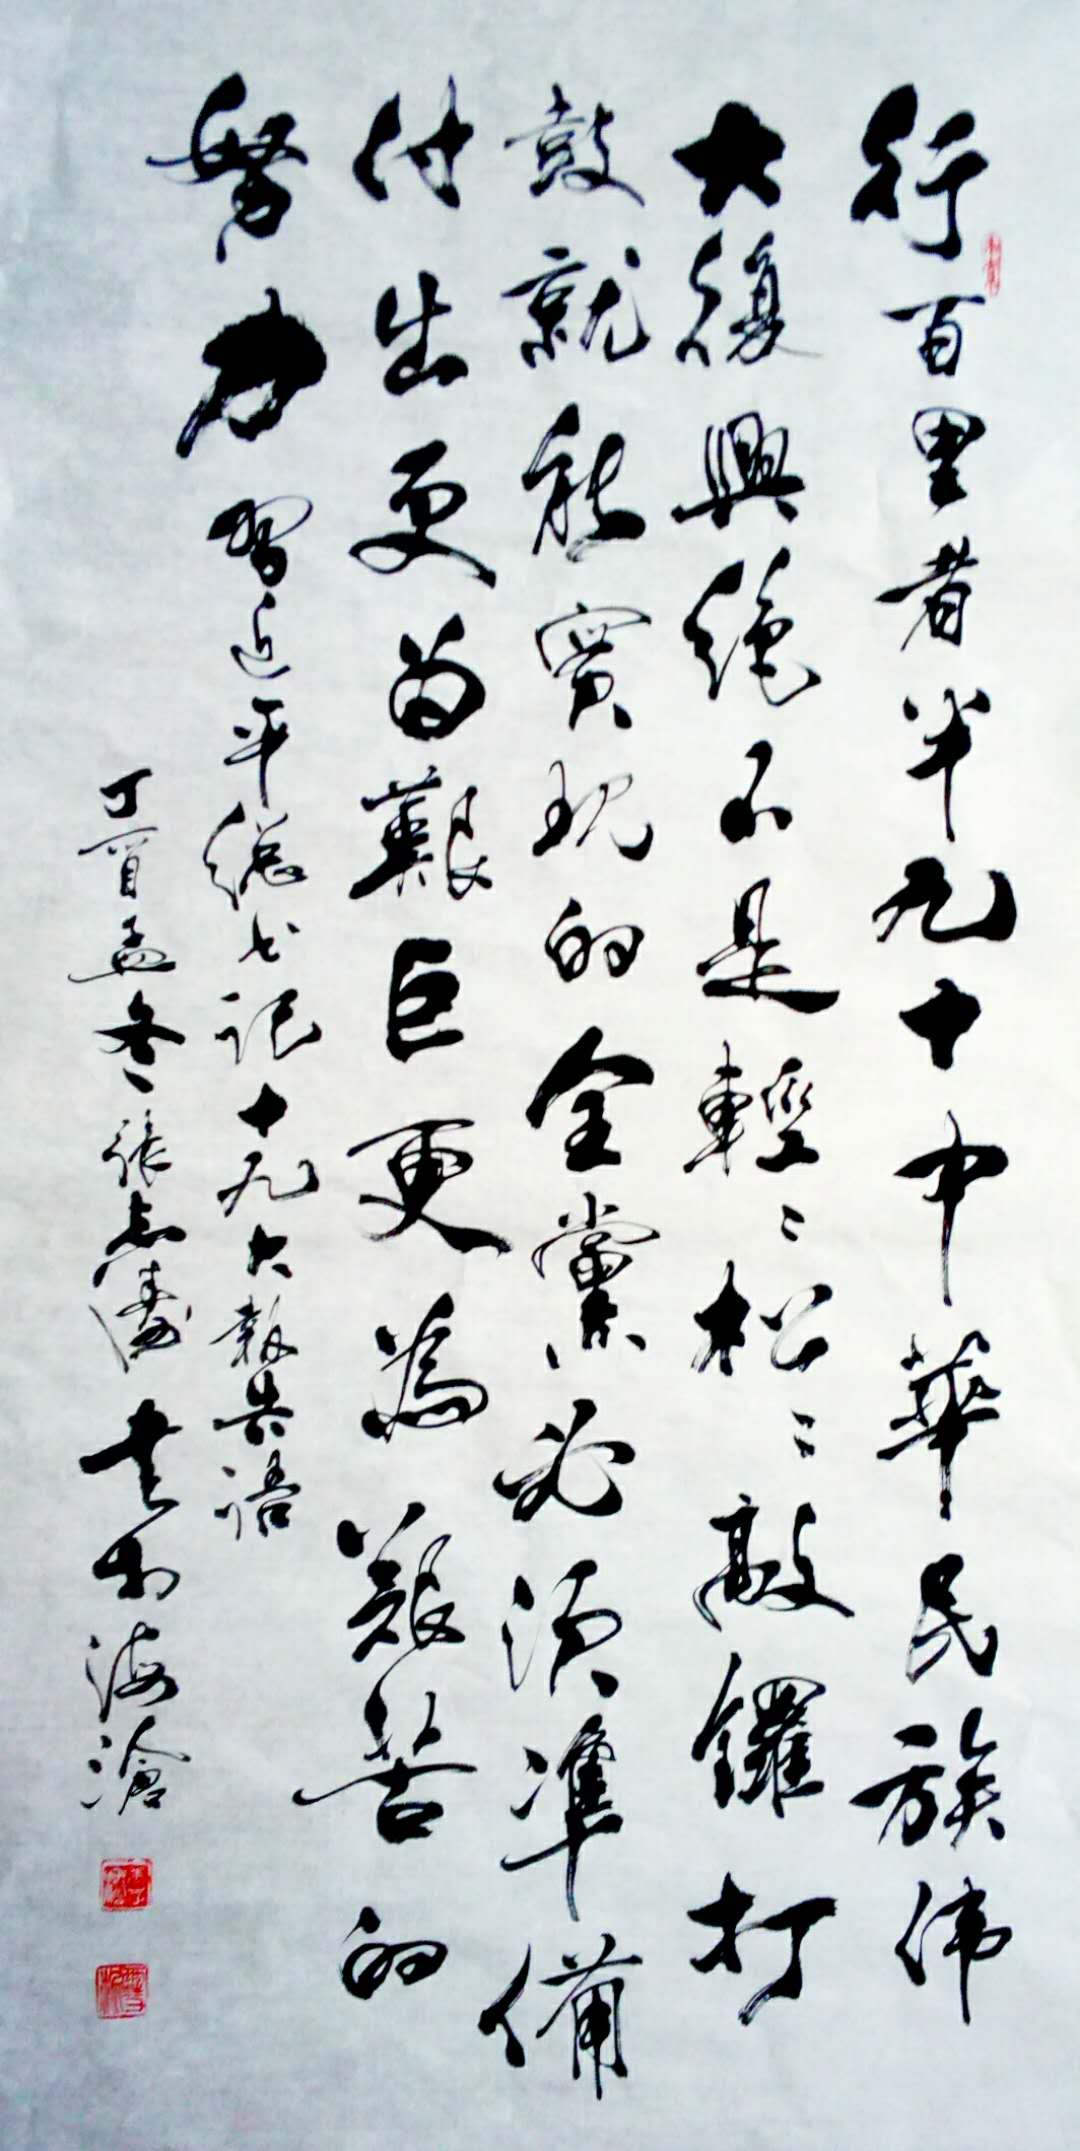 行百里者半九十中華民族偉
大復興絕不是輕〻松〻敲鑼打
鼓就能實現的全黨必須準備
付出更為艱巨更為艱苦的
努力 習近平總書記十九大報告語
丁酉孟冬張志濤書於海滄